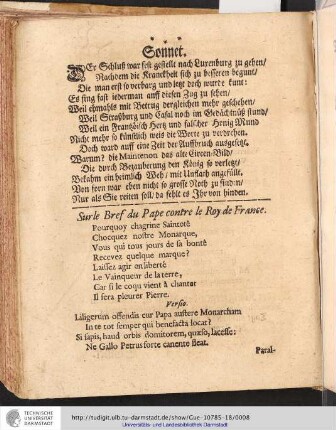 Sonnet.
DEr Schluß war fest gestellt nach Luxenburg zu gehen/
Nachdem die Kranckheit sich zu bessern begunt/
Die man erst so verbarg und jetzt doch wurde kunt:
Es fing fast iederman auff diesen Zug zu sehen/
Weil ehmahls mit Betrug dergleichen mehr geschehen/
Weil Straßburg und Casal noch im Gedächtnüß stund/
Weil ein Frantzösch Hertz und falscher Henig Mund
Nicht mehr so künstlich weis die Worte zu verdrehen.
Doch ward auff eine Zeit der Auffbruch ausgesetzt,
Warum? die Maintenon das alte Circen-Bild/
Die durch Bezauberung den König so verletzt/
Bekahm ein heimlich Weh/ mit Unflath angefüllt,
Von fern war eben nicht so grosse Noth zu finden/
Nur als Sie reiten soll, da fehlt es Ihr von hinden.
Sur le Bref du Pape contre le Roy de France.
Pourquoy chagrine Saintoté
Chocquez nostre Monarque,
Vous qui tous jours de sa bonté
Recevez quelque marque?
Laissez agir en liberté
Le Vainqueur de la terre,
Car si le coqu vient à chanter
Il fera pleurer Pierre.
Versio.
Liligerum offendis cur Papa austere Monarcham
In te tot semper qui benefacta locat?
Si sapis, haud orbis domitorem, quæso, lacesse:
Ne Gallo Petrus forte canente fleat.
Paral-
TECHNISCHE
UNIVERSITÄT
DARMSTADT
http://tudigit.ulb.tu-darmstadt.de/show/Gue-10785-18/0008
Universitäts- und Landesbibliothek Darmstadt